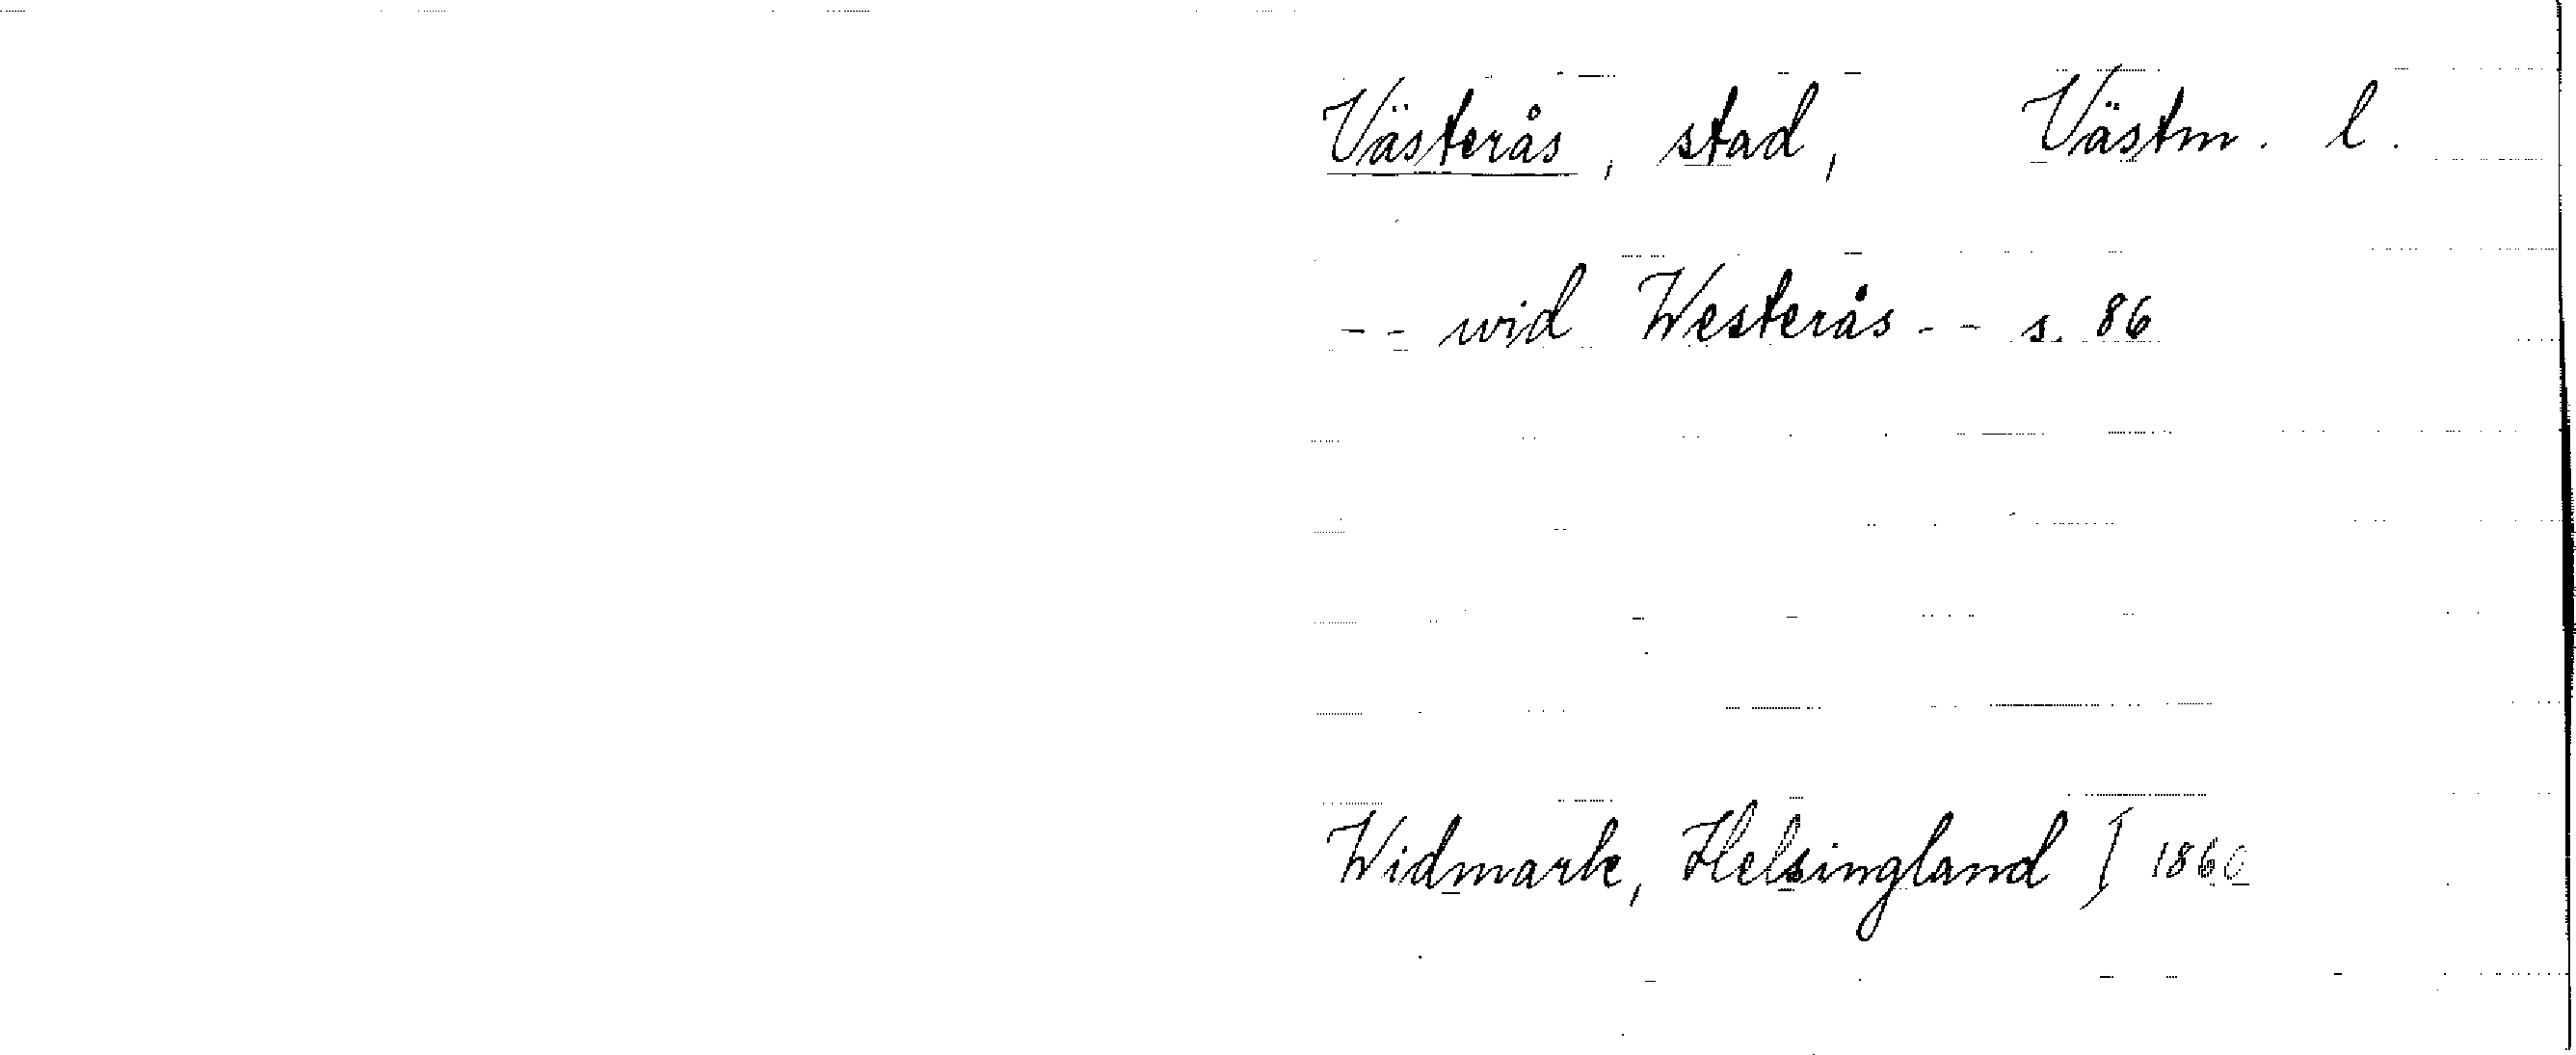 Västerås, stad, Västm. l.
-- wid Westerås -- s. 86
Widmark, Helsingland I 1860